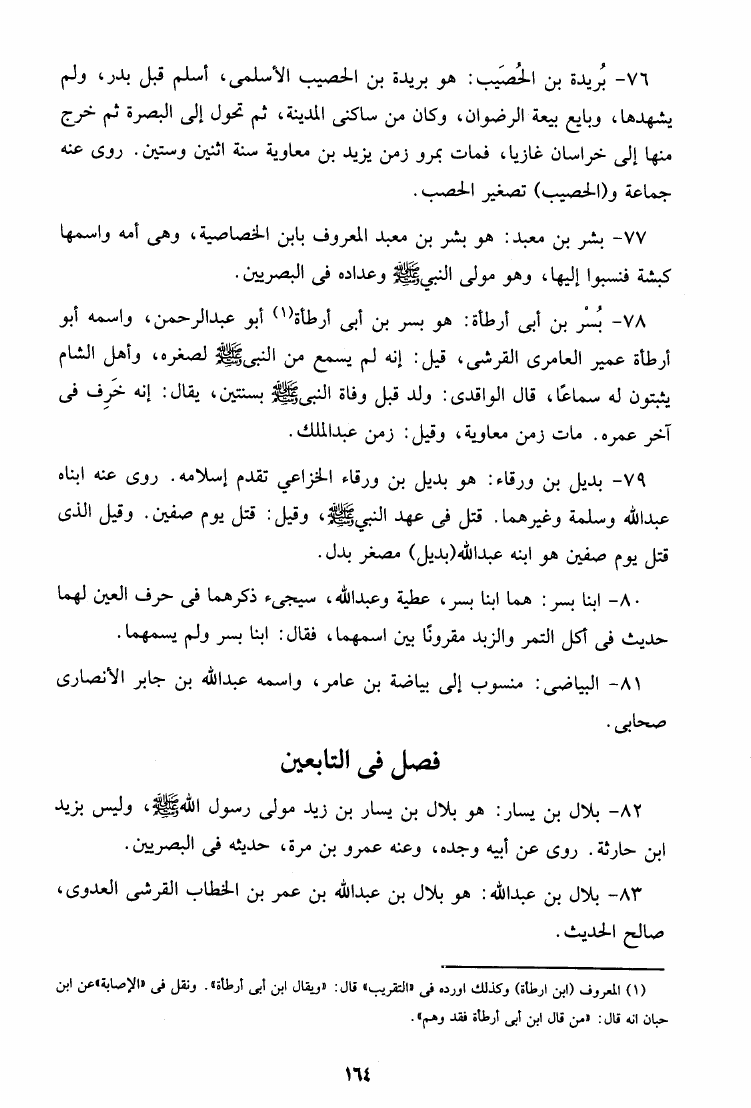 ٧٦- بُريدة بن الحُصَيب: هو بريدة بن الحصيب الأسلمى، أسلم قبل بدر، ولم
يشهدها، وبايع بيعة الرضوان، وكان من ساكنى المدينة، ثم تحول إلى البصرة ثم خرج
منها إلى خراسان غازيا، فمات بمرو زمن يزيد بن معاوية سنة اثنين وستين. روى عنه
جماعة و(الحصيب) تصغير الحصب.
٧٧- بشر بن معبد: هو بشر بن معبد المعروف بابن الخصاصية، وهى أمه واسمها
كبشة فنسبوا إليها، وهو مولى النبيﷺ وعداده فى البصريين.
٧٨- بُسْر بن أبى أرطأة: هو بسر بن أبى أرطأة(١) أبو عبدالرحمن، واسمه أبو
أرطأة عمير العامرى القرشى، قيل: إنه لم يسمع من النبىﷺ لصغره، وأهل الشام
يثبتون له سماعًا، قال الواقدى: ولد قبل وفاة النبىﷺ بسنتين، يقال: إنه خَرِف فى
آخر عمره. مات زمن معاوية، وقيل: زمن عبدالملك.
٧٩- بديل بن ورقاء: هو بديل بن ورقاء الخزاعي تقدم إسلامه. روى عنه ابناه
عبدالله وسلمة وغيرهما. قتل فى عهد النبيﷺ، وقيل: قتل يوم صفين. وقيل الذى
قتل يوم صفين هو ابنه عبدالله(بديل) مصغر بدل.
٨٠- ابنا بسر: هما ابنا بسر، عطية وعبدالله، سيجىء ذكرهما فى حرف العين لهما
حديث فى أكل التمر والزبد مقرونًا بين اسمهما، فقال: ابنا بسر ولم يسمهما.
٨١- البياضى: منسوب إلى بياضة بن عامر، واسمه عبدالله بن جابر الأنصارى
صحابى.
فصل فى التابعين
٨٢- بلال بن يسار: هو بلال بن يسار بن زيد مولى رسول اللهﷺ، وليس بزيد
ابن حارثة. روى عن أبيه وجده، وعنه عمرو بن مرة، حديثه فى البصريين.
٨٣- بلال بن عبدالله: هو بلال بن عبدالله بن عمر بن الخطاب القرشى العدوى،
صالح الحديث.
(١) المعروف (ابن ارطأة) وكذلك اورده فى «التقريب» قال: «ويقال ابن أبى أرطأة». ونقل فى «الإصابة»عن ابن
حبان انه قال: «من قال ابن أبى أرطأة فقد وهم».
١٦٤